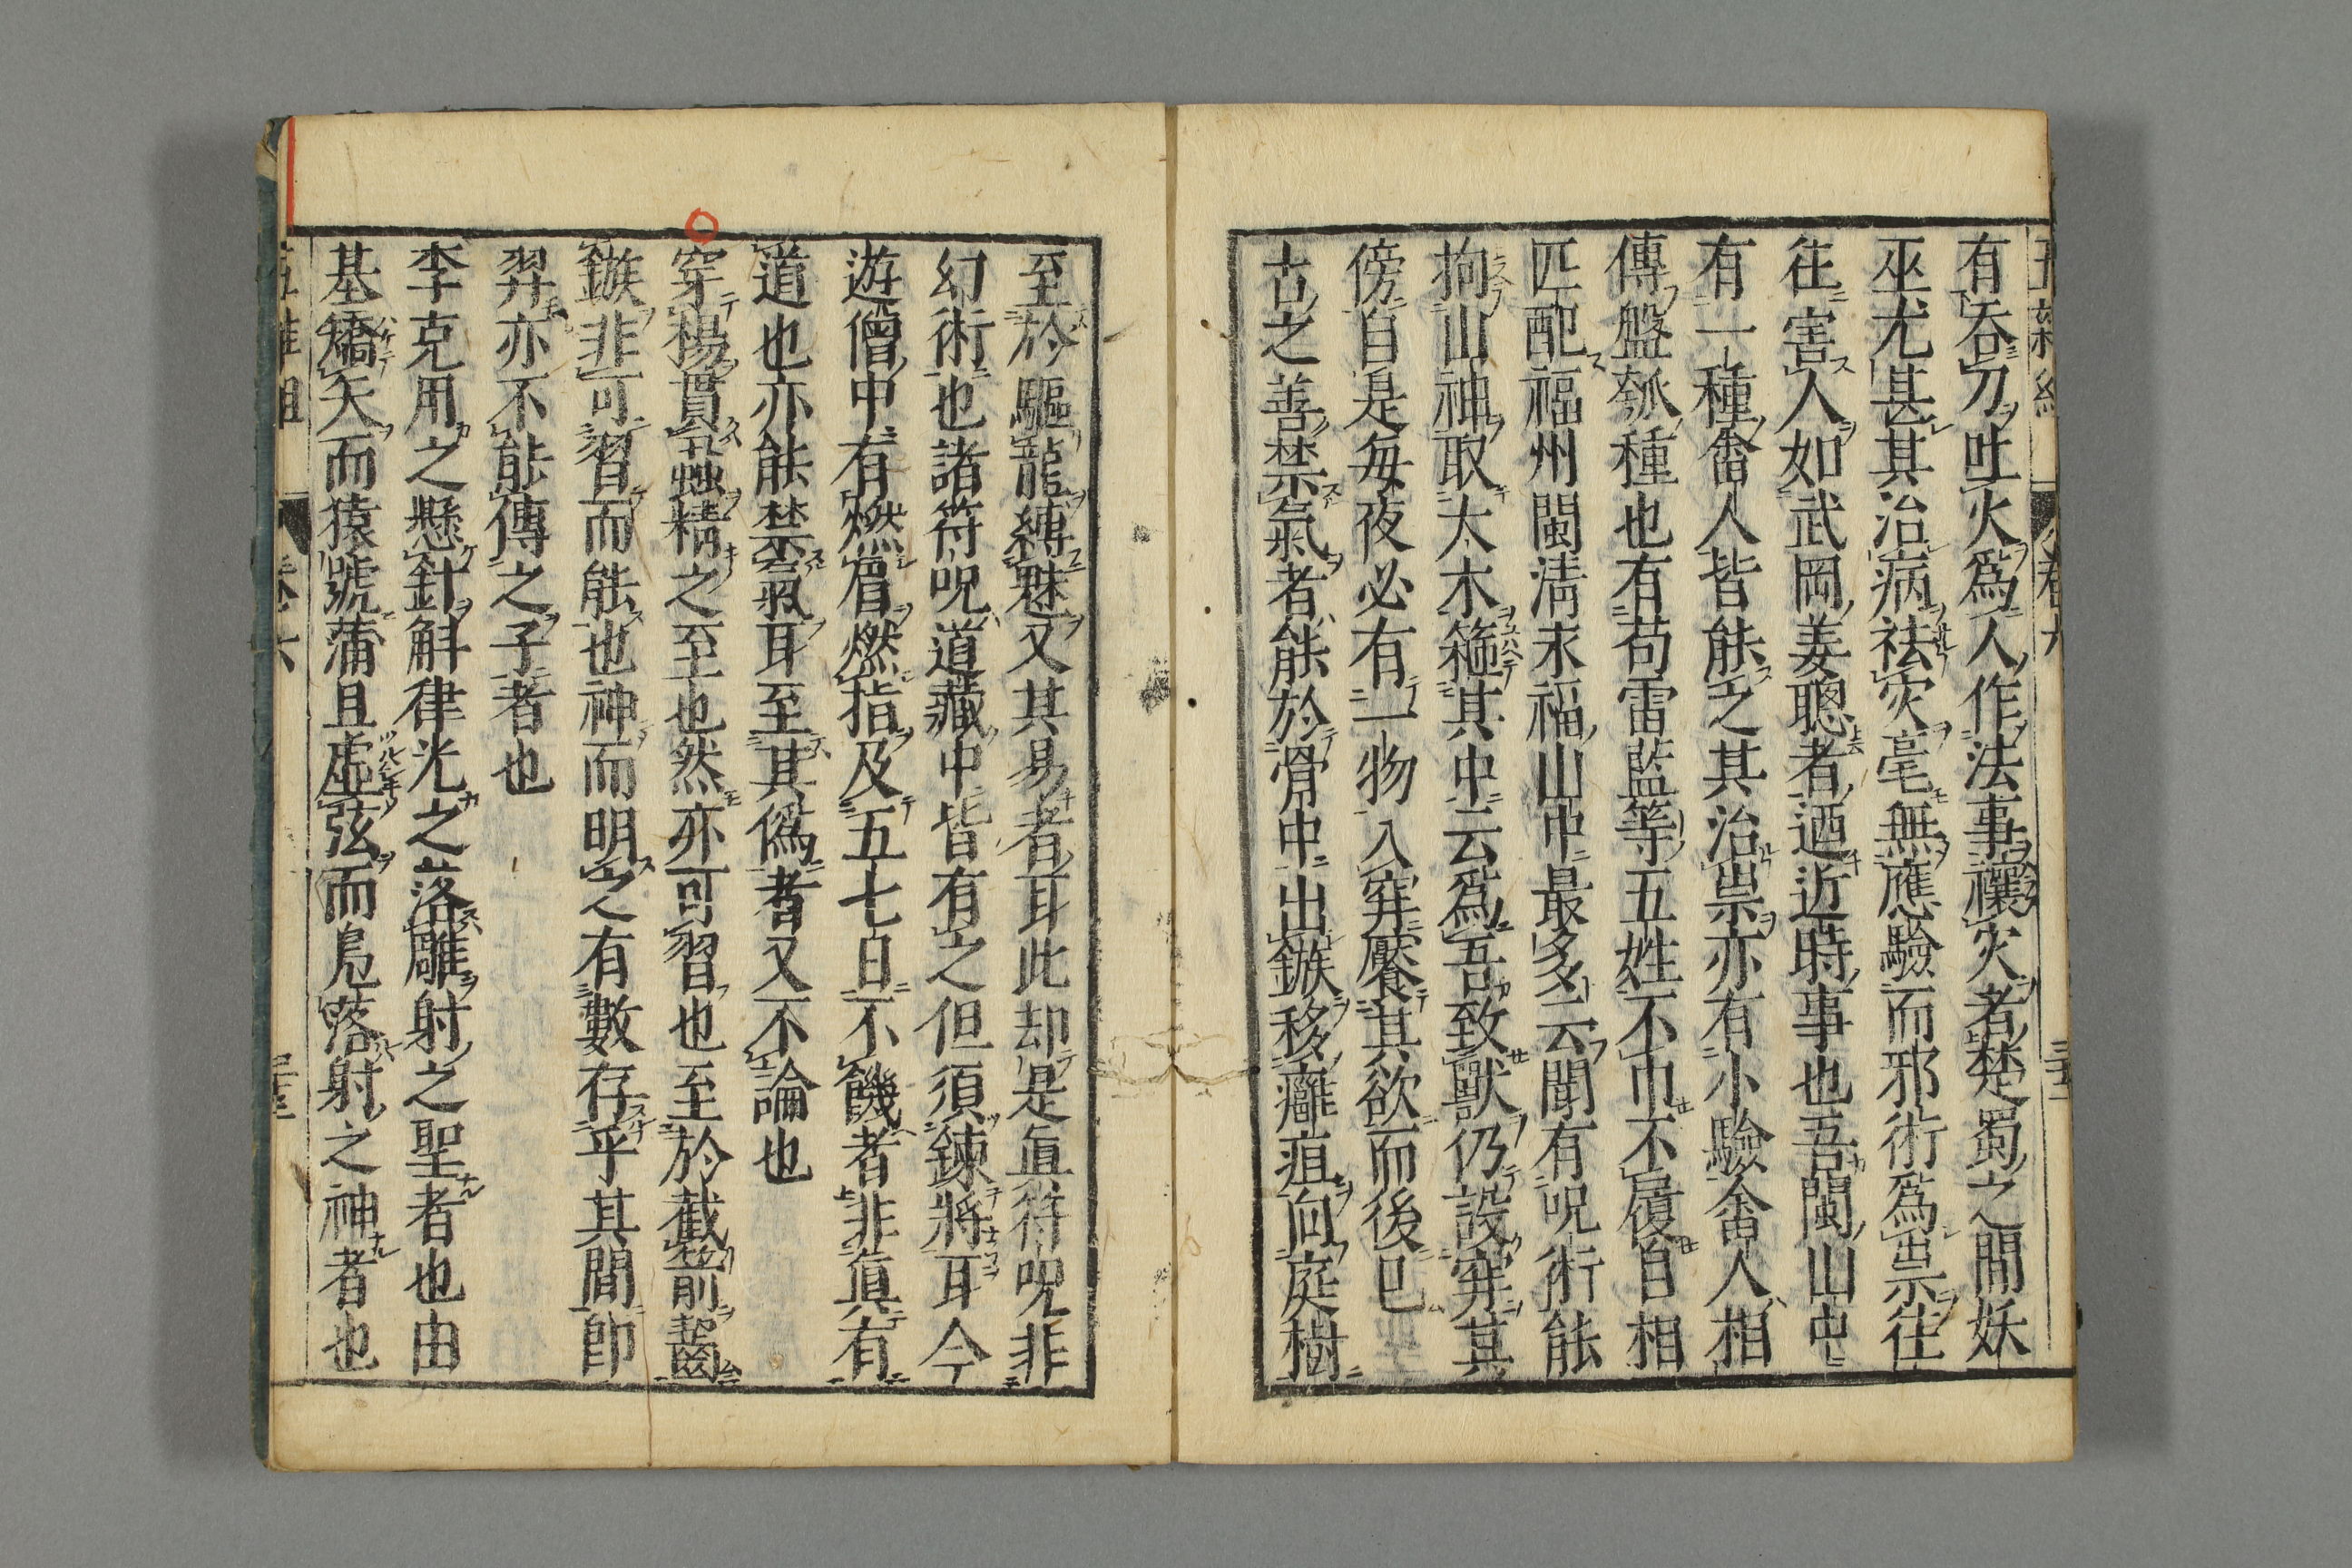 有呑刀吐火爲人作法事禳灾者楚蜀之間妖
巫尤甚其治病祛灾毫無應驗而邪術爲祟往
往害人如武岡姜聰者迺近時事也吾閩山中
有一種畬人皆能之其治祟亦有小驗畬人相
傳盤瓠種也有苟雷藍等五姓不巾不履自相
匹配福州閩清永福山中最多云聞有呪術能
拘山神取大木箍其中云爲吾致獸仍設穽其
傍自是每夜必有一物入穽饜其欲而後已
古之善禁氣者能於骨中出鏃移癰疽向庭樹
至於驅龍縛魅又其易者耳此却是眞符呪非
幻術也諸符呪道藏中皆有之但須鍊將耳今
遊僧中有燃眉燃指及五七日不饑者非眞有
道也亦能禁氣耳至其僞者又不論也
穿楊貫蝨精之至也然亦可習也至於截箭齧
鏃非可習而能也神而明之有數存乎其間卽
羿亦不能傳之子者也
李克用之懸針斛律光之落雕射之聖者也由
基矯矢而猿號蒲且虛弦而鳧落射之神者也
五雜組
卷六